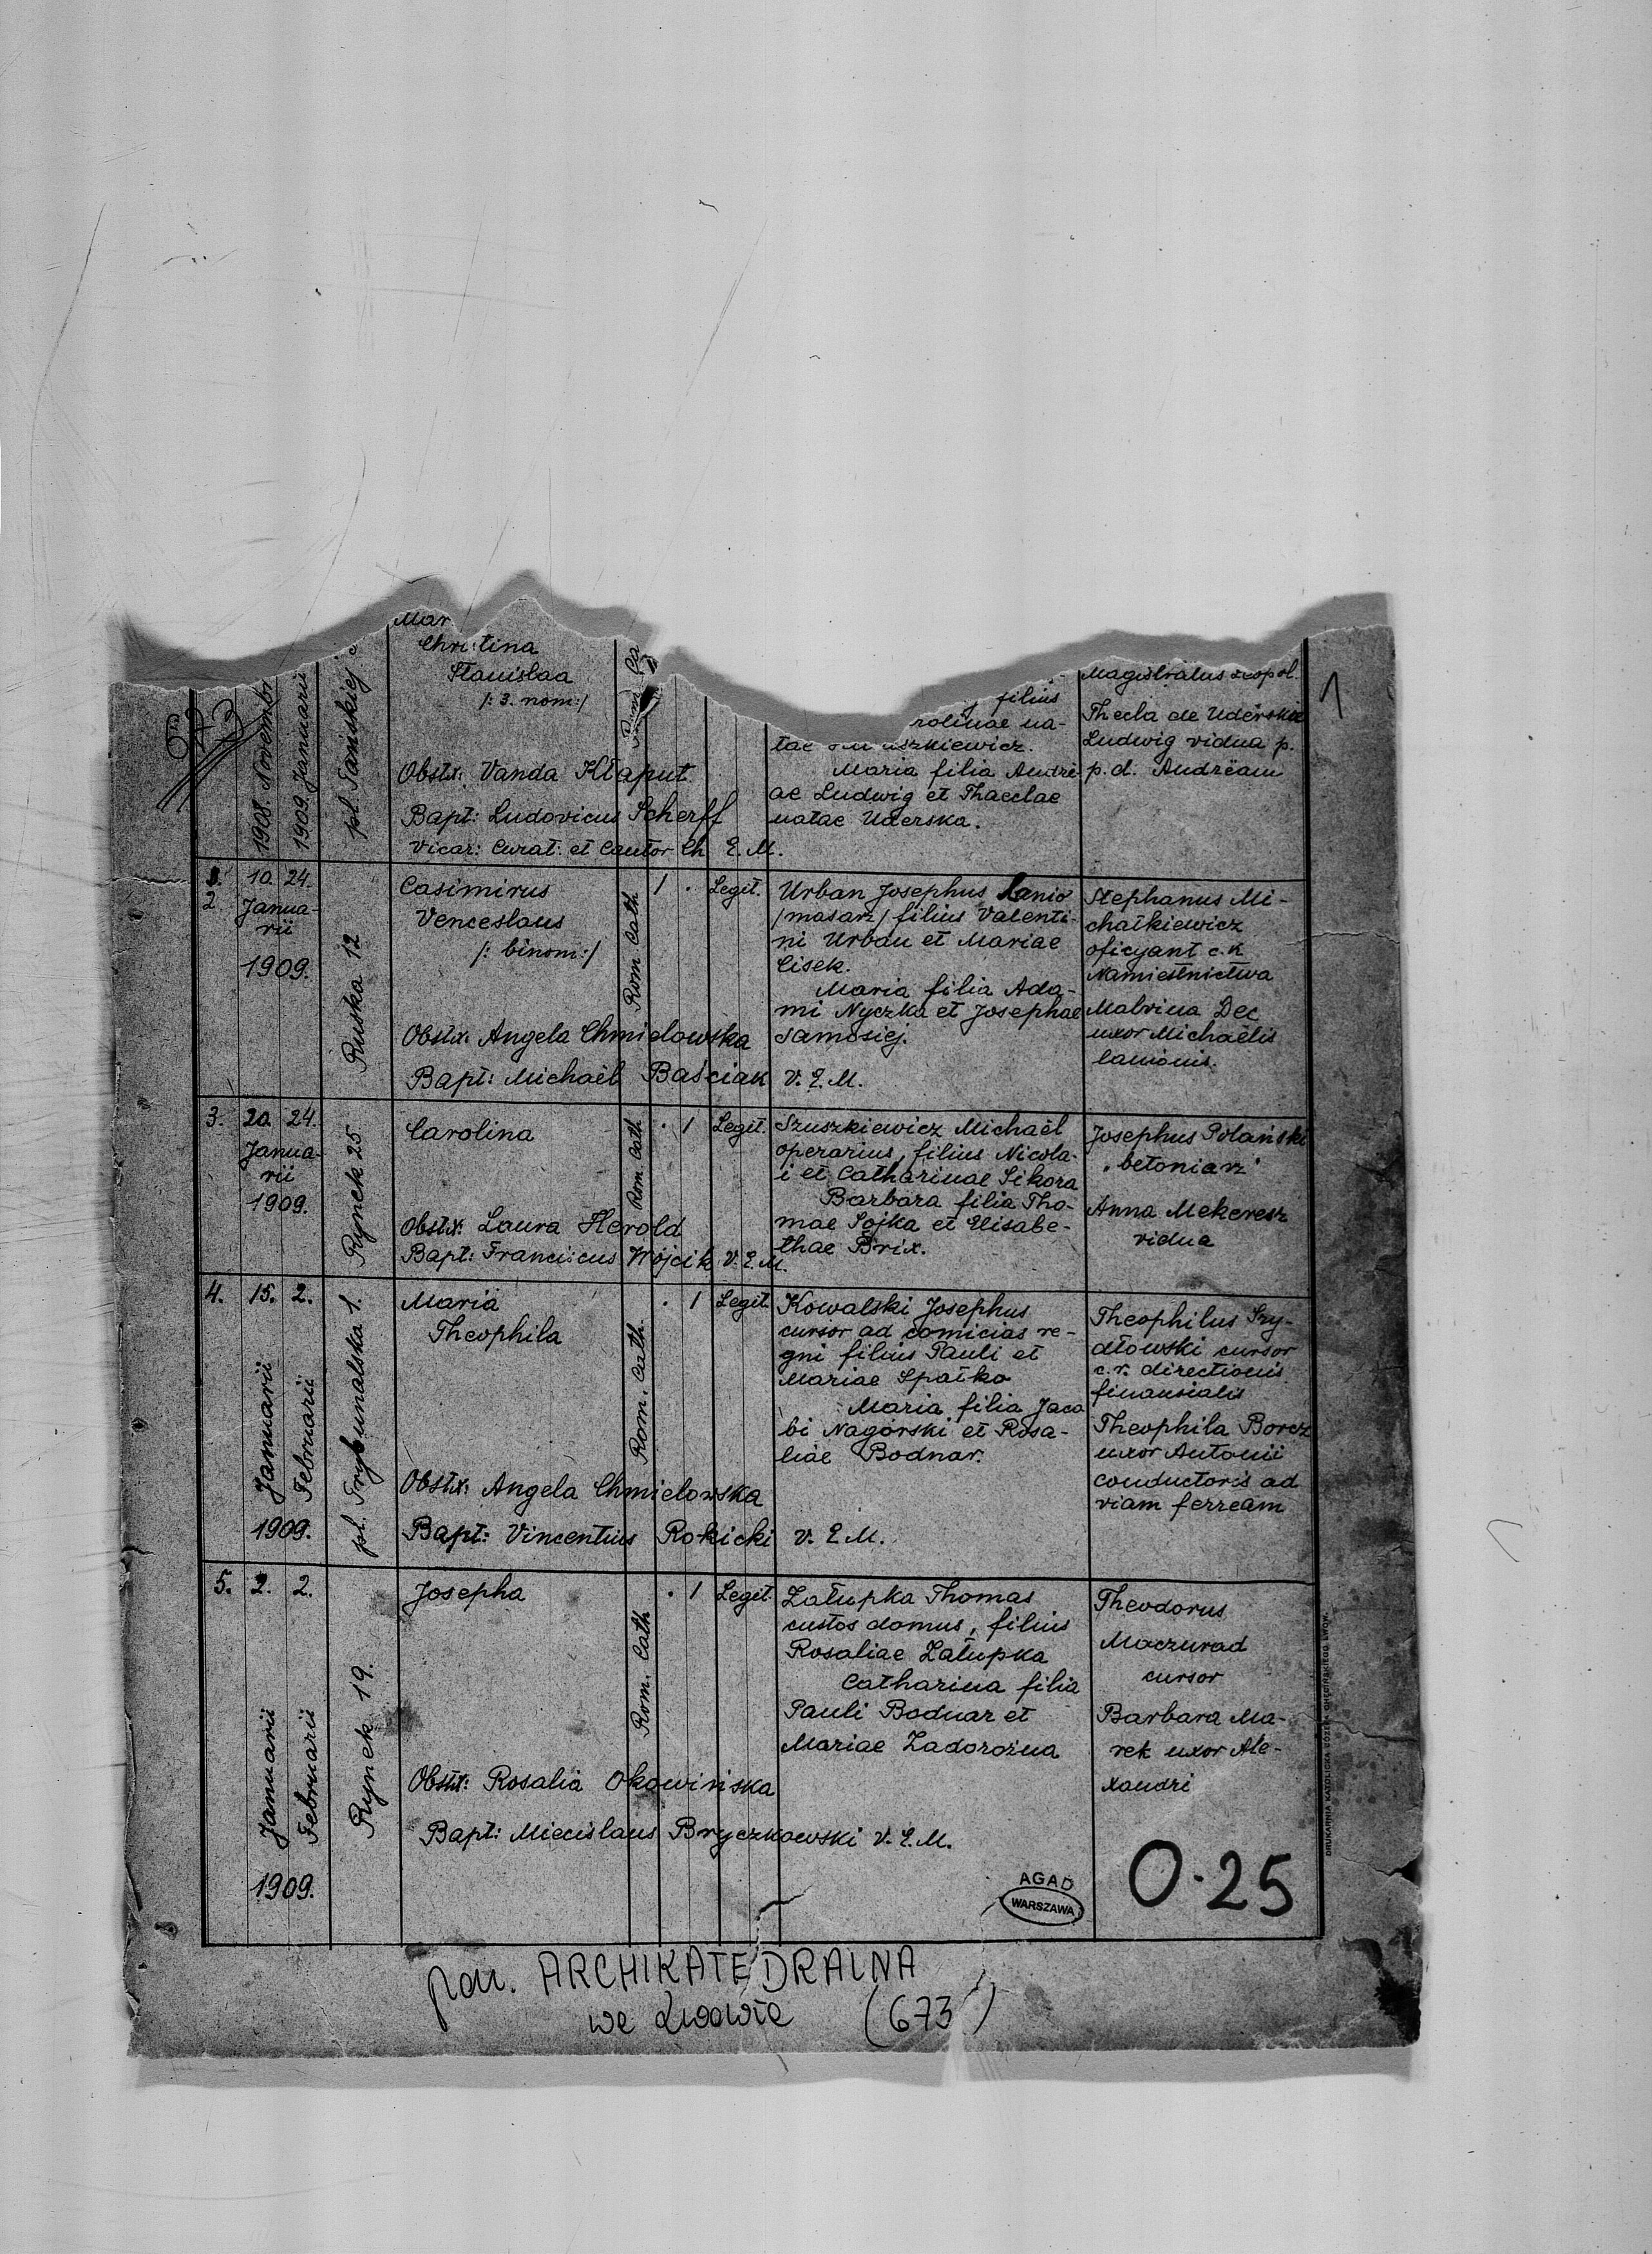 Mar
Christina
Stanislaa
/: 3. nom:/
1908. Novembr
1909. Januarii
pl. Tańskiej
Rom. Ca
filius
rolinae na-
tae uszkiewicz.
Maria filia Andre-
ae Ludwig et Thaeclae
natae Uderska.
Magistratus leopol.
Thecla de Uderskie
Ludwig vidua p.
p. d. Andream
1
673
Obstx: Vanda Kłaput
Bapt: Ludovicus Scherff
Vicar: Curat. et Cantor Ch E. M.
2.
10. 24.
Janua-
rii
1909.
Ruska 12
Casimirus
Venceslaus
/: binom:/
Rom. Cath.
1 .
Legit.
Urban Josephus lanio
/masarz/ filius Valenti-
ni Urban et Mariae
Cisek.
Maria filia Ada-
mi Nyczka et Josephae
Samosiej.
Stephanus Mi-
chałkiewicz
oficyant c. k
Namiestnictwa
Malvina Dec
uxor Michaëlis
lanionis.
Obstx. Angela Chmielowska
Bapt: Michaël Baściak V. E. M.
3.
20. 24.
Janua-
rii
1909.
Rynek 25
Carolina
Rom. Cath
. 1
Legit.
Szuszkiewicz Michaël
operarius, filius Nicola-
i et Catharinae Sikora
Barbara filia Tho-
mae Sojka et Elisabe-
thae Brix.
Josephus Polański
"betoniarz"
Anna Mekeresz
vidua
Obstx: Laura Herold
Bapt: Franciscus Wójcik V. E. M.
4.
15. 2.
Januarii
Februarii
1909.
pl. Trybunalska 1.
Maria
Theophila
Rom. Cath.
. 1
Legit.
Kowalski Josephus
cursor ad comicias re-
gni filius Pauli et
Mariae Spałko
Maria filia Jaco
bi Nagórski et Rosa-
liae Bodnar.
Theophilus Szy-
dłowski cursor
c. r. directionis
finansialis
Theophila Borcz
uxor Antonii
conductoris ad
viam ferream
Obstx: Angela Chmielowska
Bapt: Vincentius Rokicki V. E. M.
5.
2. 2.
Januarii
Februarii
1909.
Rynek 19.
Josepha
Rom. Cath
. 1
Legit.
Załupka Thomas
custos domus, filius
Rosaliae Załupka
Catharina filia
Pauli Bodnar et
Mariae Zadorożna
Theodorus
Maczurad
cursor
Barbara Ma-
rek uxor Ale-
xandri
Obstx: Rosalia Okowińska
Bapt: Miecislaus Bryczkowski V. E. M.
AGAD
WARSZAWA
0·25
par. ARCHIKATEDRALNA
we Lwowie (673)